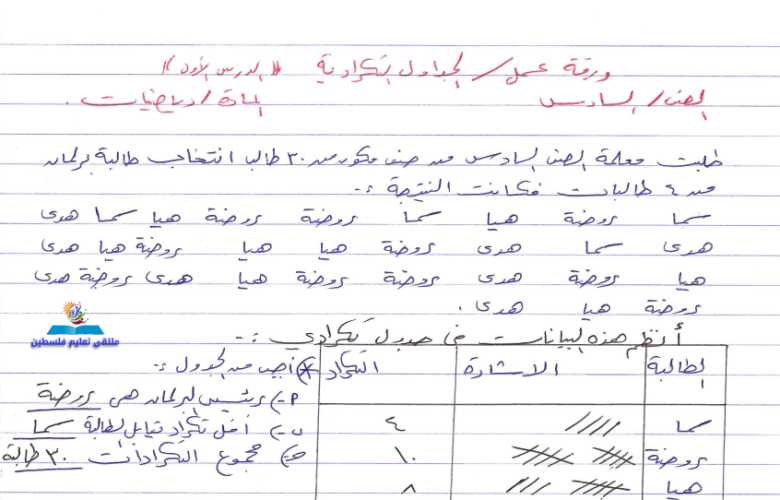 ورقة عمل / الجداول التكرارية (( الدرس الأول ))
الصف / السادس المادة / رياضيات .
طلبت معلمة الصف السادس من صف مكون من ٣٠ طالبا انتخاب طالبة برلمان
من ٤ طالبات فكانت النتيجة :-
سما روضة هيا سما روضة روضة هيا سما هدى
هدى سما هدى روضة هيا هيا روضة هيا هدى
هيا روضة هدى روضة روضة هيا هدى روضة هدى
روضة هيا هدى .
أنظم هذه البيانات في جدول تكراري :-
الطالبة الاشارة التكرار
سما //// ٤
روضة //// //// ١٠
هيا //// /// ٨
* أجيب من الجدول :-
أ) رئيس البرلمان هي روضة
ب) أقل تكرار تقابل لطالبة سما
ج) مجموع التكرارات ٣٠ طالبة
ملتقى تعليم فلسطين